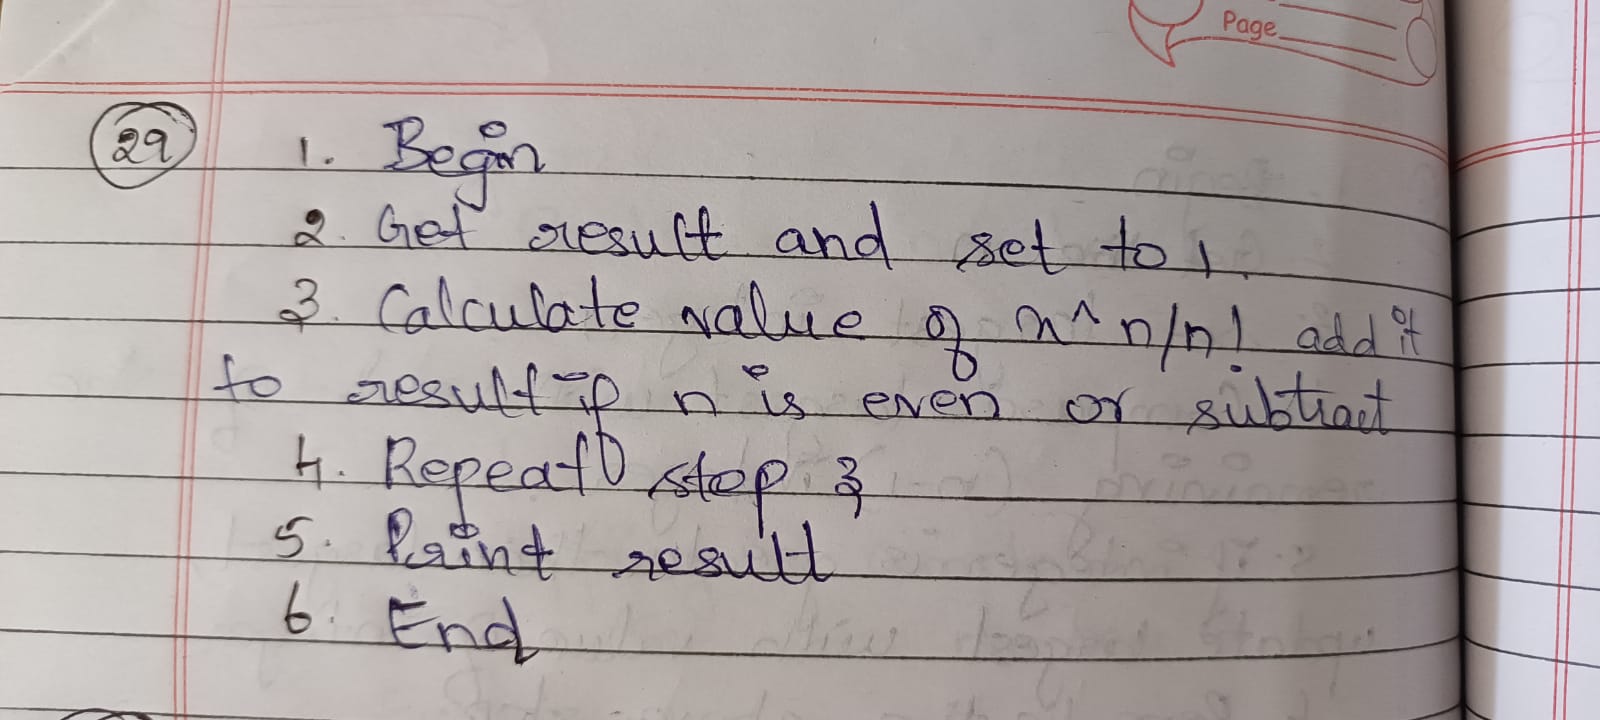 Page
29
1. Begin
2. Get result and set to 1.
3. Calculate value of x^n/n! add it
to result if n is even or subtract
4. Repeat step 3
5. Print result
6. End